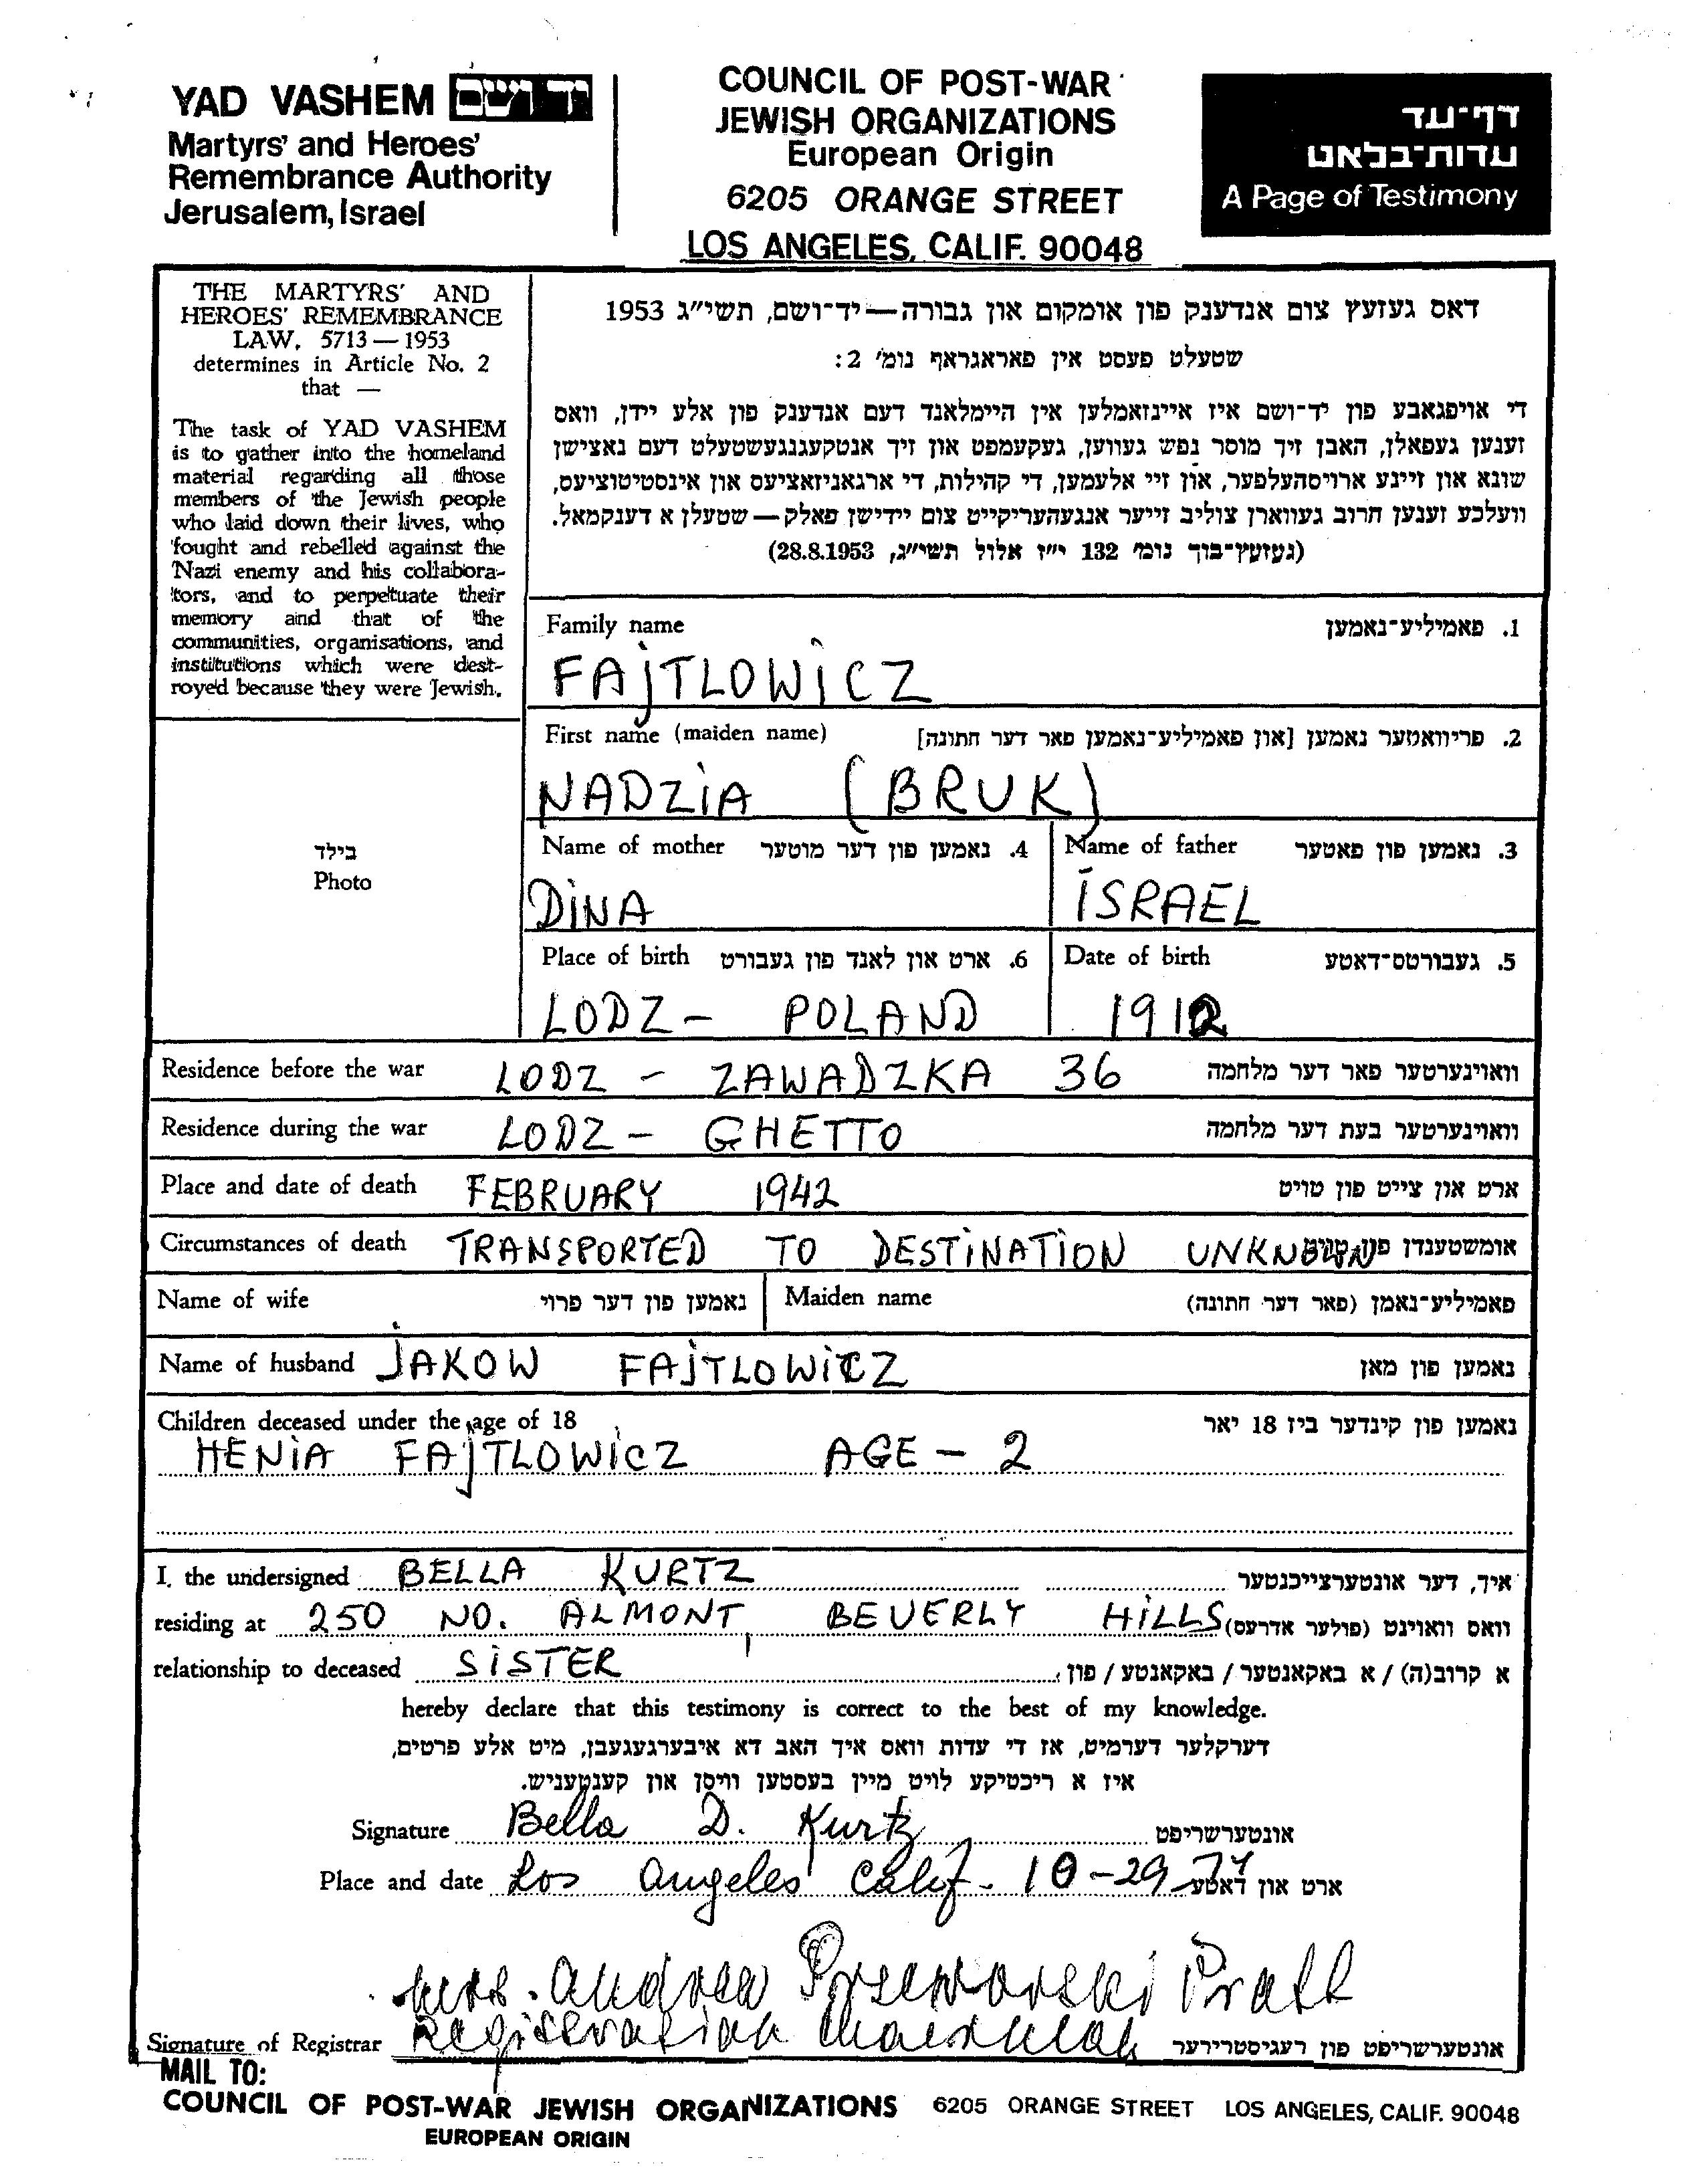 YAD VASHEM יד ושם
Martyrs' and Heroes'
Remembrance Authority
Jerusalem, Israel
COUNCIL OF POST-WAR
JEWISH ORGANIZATIONS
European Origin
6205 ORANGE STREET
LOS ANGELES, CALIF. 90048
דף-עד
עדות-בלאט
A Page of Testimony
THE MARTYRS' AND
HEROES' REMEMBRANCE
LAW, 5713 — 1953
determines in Article No. 2
that —
The task of YAD VASHEM
is to gather into the homeland
material regarding all those
members of the Jewish people
who laid down their lives, who
fought and rebelled against the
Nazi enemy and his collabora-
tors, and to perpetuate their
memory and that of the
communities, organisations, and
institutions which were dest-
royed because they were Jewish.
דאס געזעץ צום אנדענק פון אומקום און גבורה — יד-ושם, תשי״ג 1953
שטעלט פעסט אין פאראגראף נומ׳ 2:
די אויפגאבע פון יד-ושם איז איינזאמלען אין היימלאנד דעם אנדענק פון אלע יידן, וואס
זענען געפאלן, האבן זיך מוסר נפש געווען, געקעמפט און זיך אנטקעגנגעשטעלט דעם נאצישן
שונא און זיינע ארויסהעלפער, און זיי אלעמען, די קהילות, די ארגאניזאציעס און אינסטיטוציעס,
וועלכע זענען חרוב געווארן צוליב זייער אנגעהעריקייט צום יידישן פאלק — שטעלן א דענקמאל.
(געזעץ-בוך נומ׳ 132 י״ז אלול תשי״ג, 28.8.1953)
Family name 1. פאמיליע-נאמען
FAJTLOWICZ
First name (maiden name) 2. פריוואטער נאמען [און פאמיליע-נאמען פאר דער חתונה]
NADZIA (BRUK)
Name of mother 4. נאמען פון דער מוטער Name of father 3. נאמען פון פאטער
DINA ISRAEL
Place of birth 6. ארט און לאנד פון געבורט Date of birth 5. געבורטס-דאטע
LODZ - POLAND 1912
בילד
Photo
Residence before the war LODZ - ZAWADZKA 36 וואוינערטער פאר דער מלחמה
Residence during the war LODZ - GHETTO וואוינערטער בעת דער מלחמה
Place and date of death FEBRUARY 1942 ארט און צייט פון טויט
Circumstances of death TRANSPORTED TO DESTINATION UNKNOWN אומשטענדן פון טויט
Name of wife נאמען פון דער פרוי Maiden name פאמיליע-נאמן (פאר דער חתונה)
Name of husband JAKOW FAJTLOWICZ נאמען פון מאן
Children deceased under the age of 18 נאמען פון קינדער ביז 18 יאר
HENIA FAJTLOWICZ AGE - 2
I, the undersigned BELLA KURTZ איך, דער אונטערצייכנטער
residing at 250 NO. ALMONT, BEVERLY HILLS וואס וואוינט (פולער אדרעס)
relationship to deceased SISTER א קרוב(ה) / א באקאנטער / באקאנטע / פון
hereby declare that this testimony is correct to the best of my knowledge.
דערקלער דערמיט, אז די עדות וואס איך האב דא איבערגעגעבן, מיט אלע פרטים,
איז א ריכטיקע לויט מיין בעסטען וויסן און קענטעניש.
Signature Bella D. Kurtz אונטערשריפט
Place and date Los Angeles Calif. 10-29 77 ארט און דאטע
Mrs. Andrea Przeworski Pratt
Signature of Registrar Registration Chairman אונטערשריפט פון רעגיסטרירער
MAIL TO:
COUNCIL OF POST-WAR JEWISH ORGANIZATIONS 6205 ORANGE STREET LOS ANGELES, CALIF. 90048
EUROPEAN ORIGIN